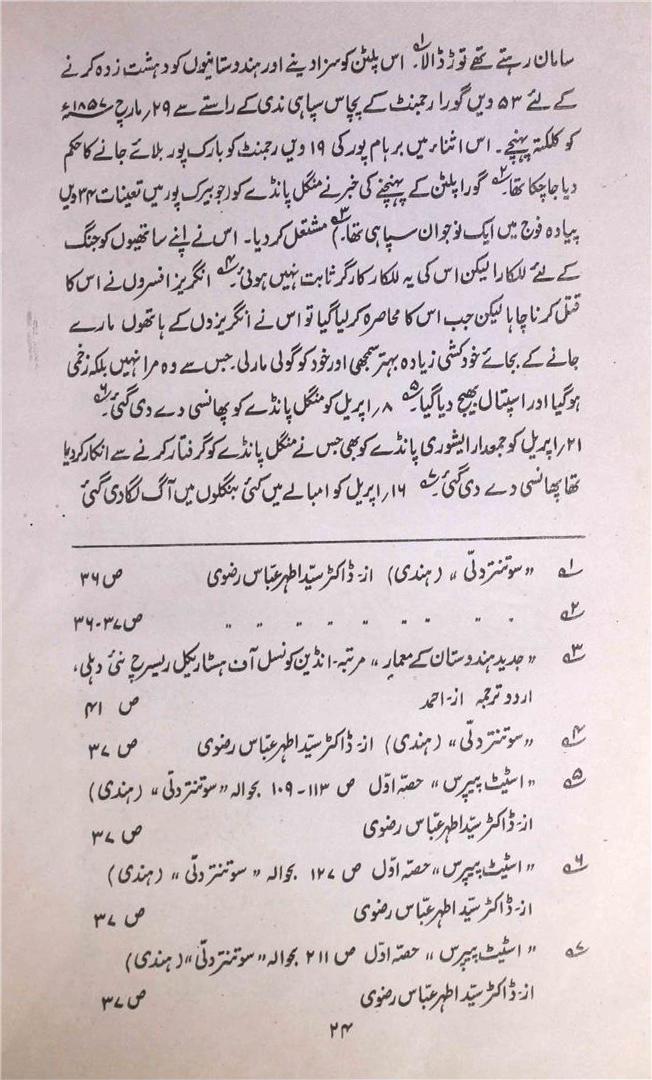 سامان رہتے تھے توڑ ڈالا۔ ؂۱ اس پلٹن کو سزا دینے اور ہندوستانیوں کو دہشت زدہ کرنے
کے لئے ۵۳ ویں گورا رجمنٹ کے پچاس سپاہی ندی کے راستے سے ۲۹؍ مارچ ۱۸۵۷ء
کو کلکتہ پہنچے۔ اس اثناء میں برہام پور کی ۱۹ ویں رجمنٹ کو بارک پور بلائے جانے کا حکم
دیا جا چکا تھا۔ ؂۲ گورا پلٹن کے پہنچنے کی خبر نے منگل پانڈے کو (جو بیرک پور میں تعینات ۳۴ ویں
پیادہ فوج میں ایک نوجوان سپاہی تھا۔ ؂۳) مشتعل کر دیا۔ اس نے اپنے ساتھیوں کو جنگ
کے لئے للکارا لیکن اس کی یہ للکار کارگر ثابت نہیں ہوئی۔ ؂۴ انگریز افسروں نے اس کا
قتل کرنا چاہا لیکن جب اس کا محاصرہ کر لیا گیا تو اس نے انگریزوں کے ہاتھوں مارے
جانے کے بجائے خودکشی زیادہ بہتر سمجھی اور خود کو گولی مار لی۔ جس سے وہ مرا نہیں بلکہ زخمی
ہو گیا اور اسپتال بھیج دیا گیا۔ ؂۵ ۸؍ اپریل کو منگل پانڈے کو پھانسی دے دی گئی۔ ؂۶
۲۱؍ اپریل کو جمعدار ایشوری پانڈے کو بھی جس نے منگل پانڈے کو گرفتار کرنے سے انکار کر دیا
تھا پھانسی دے دی گئی۔ ؂۷ ۱۶؍ اپریل کو امبالے میں کئی بنگلوں میں آگ لگا دی گئی
؂۱ ”سوتنتر دلّی“ (ہندی) از۔ ڈاکٹر سیّد اطہر عبّاس رضوی ص ۳۶
؂۲ " " " " " " " " ص ۳۷-۳۶
؂۳ ”جدید ہندوستان کے معمار“ مرتبہ۔ انڈین کونسل آف ہسٹاریکل ریسرچ نئی دہلی،
اردو ترجمہ از۔ احمد ص ۴۱
؂۴ ”سوتنتر دلّی“ (ہندی) از۔ ڈاکٹر سیّد اطہر عبّاس رضوی ص ۳۷
؂۵ ”اسٹیٹ پیپرس“ حصّہ اوّل ص ۱۱۳-۱۰۹ بحوالہ ”سوتنتر دلّی“ (ہندی)
از۔ ڈاکٹر سیّد اطہر عبّاس رضوی ص ۳۷
؂۶ ”اسٹیٹ پیپرس“ حصّہ اوّل ص ۱۲۷ بحوالہ ”سوتنتر دلّی“ (ہندی)
از۔ ڈاکٹر سیّد اطہر عبّاس رضوی ص ۳۷
؂۷ ”اسٹیٹ پیپرس“ حصّہ اوّل ص ۲۱۱ بحوالہ ”سوتنتر دلّی“ (ہندی)
از۔ ڈاکٹر سیّد اطہر عبّاس رضوی ص ۳۷
۲۴